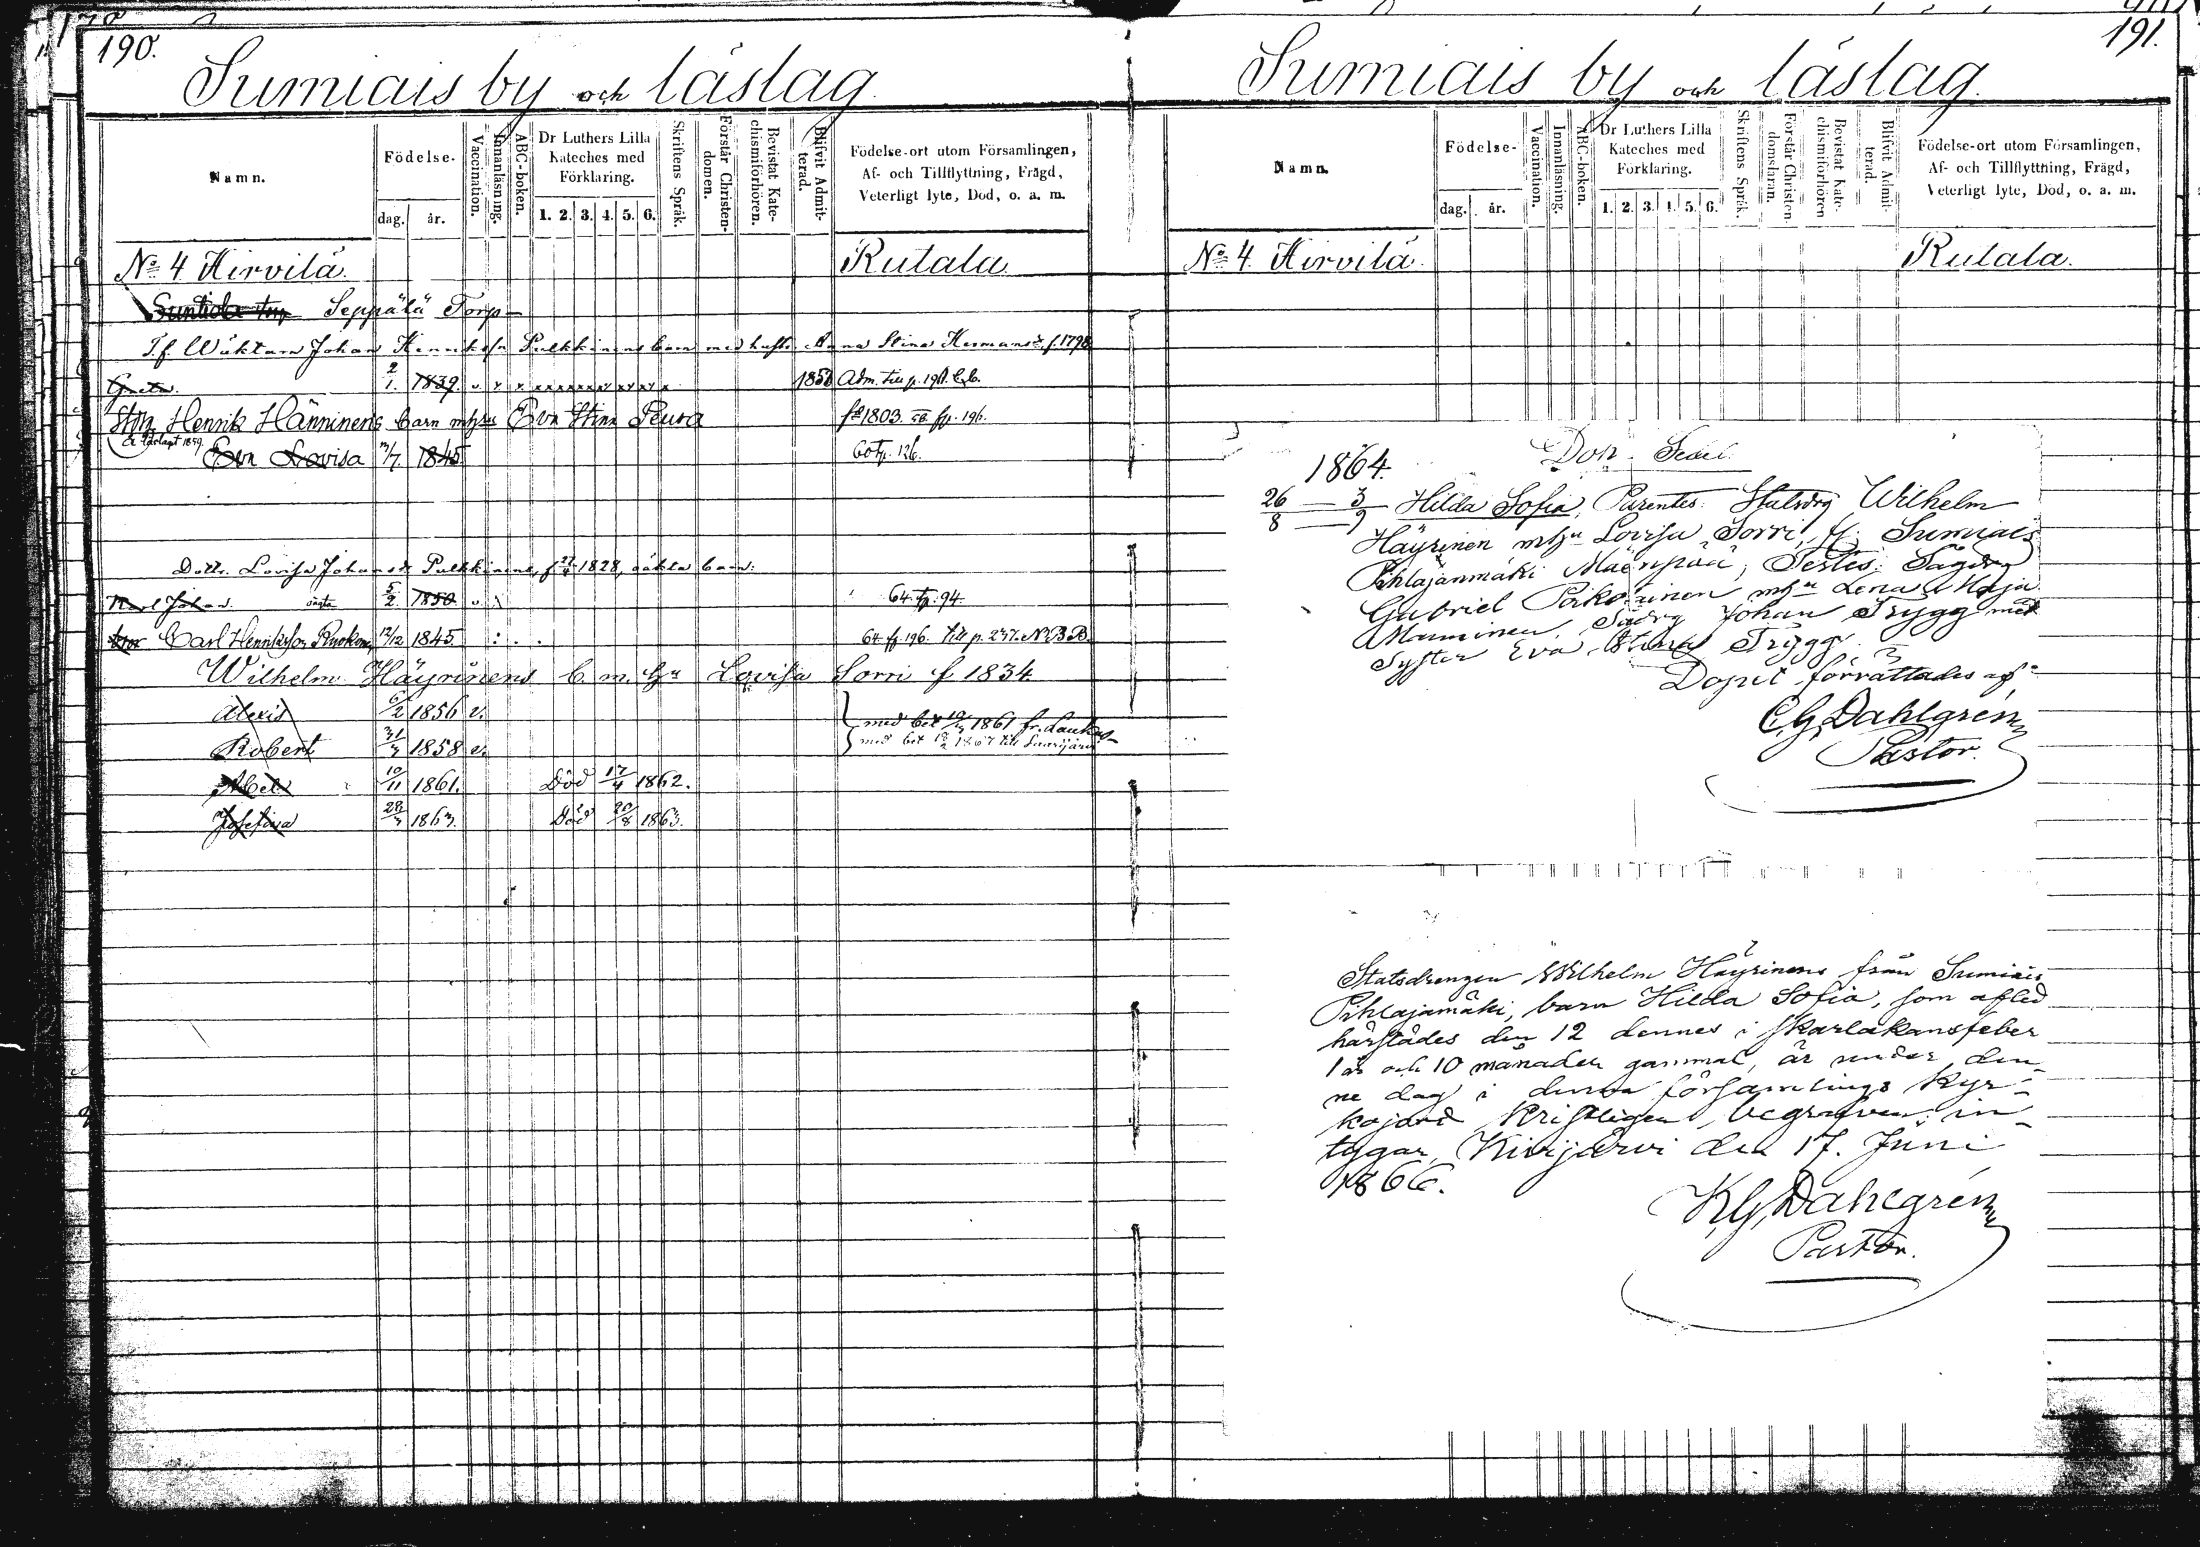 190.
Sumiais by och läslag.
Namn.
Födelse-
dag. år.
Vaccination.
Innanläsning.
ABC-boken.
Dr Luthers Lilla
Kateches med
Förklaring.
1. 2. 3. 4. 5. 6.
Skriftens Språk.
Förstår Christen-
domen.
Bevistat Kate-
chismiförhören.
Blifvit Admit-
terad.
Födelse-ort utom Församlingen,
Af- och Tillflyttning, Frägd,
Veterligt lyte, Död, o. a. m.
No 4 Hirvilä. Rutala
Seppälä Torp
T.f. Wäktarn Johan Pulkkinens barn med hustr. Anna Stina Hermansdr. f. 1798
Greta. 2/1. 1839. v. x x x x x x x x x x x x 1858 Adm.
Henrik Hänninens barn m hu Eva Stina Peura fd 1803 fp. 196.
Eva Lovisa 1845 60 fp. 126.
Dottr. Lovisa Johansdr Pulkkinens, f 1828, oäkta barn:
Karl Johan. oägta 5/2. 1850 v. 64. fp. 94.
Carl Henriksson 12/12 1845. 64 fp. 196. till p. 237. N. B. B.
Wilhelm Häyrinens b. m. hu Lovisa Sorri f 1834
Alexis 6/2 1856 v. med bet 1861 fr. Laukas
Robert 31/3 1858 v. med bet 1867 till Saarijärvi
Abel 10/11 1861. Död 17/4 1862.
Josefina 28/3 1863. Död 20/8 1863.
191.
Sumiais by och läslag.
Namn.
Födelse-
dag. år.
Vaccination.
Innanläsning.
ABC-boken.
Dr Luthers Lilla
Kateches med
Förklaring.
1. 2. 3. 4. 5. 6.
Skriftens Språk.
Förstår Christen-
domsläran.
Bevistat Kate-
chismiförhören
Blifvit Admit-
terad.
Födelse-ort utom Församlingen,
Af- och Tillflyttning, Frägd,
Veterligt lyte, Död, o. a. m.
No 4 Hirvilä. Rutala.
Dop. Sedel.
1864.
26/8 — 3/9 Hilda Sofia, Parentes: Statsdrg Wilhelm
Häyrinen m hu Lovisa Sorri, fr. Sumiais
Pihlajanmäki Mäenpää; Testes: Sågdrg
Gabriel Poikolainen m hu Lena Maja
Manninen. Sådrg Johan Trygg med
Syster Eva Stina Trygg.
Dopet förrättades af
C. G. Dahlgren
Pastor.
Statsdrengen Wilhelm Häyrinens från Sumiais
Pihlajamäki, barn Hilda Sofia, som afled
härstädes den 12 dennes i skarlakansfeber
1 år och 10 månader gammal, är under den-
ne dag i denna församlings kyr-
kojord kristligen begrafven; in-
tygar, Kivijärvi den 17. Juni
1866.
K. G. Dahlgren
Pastor.